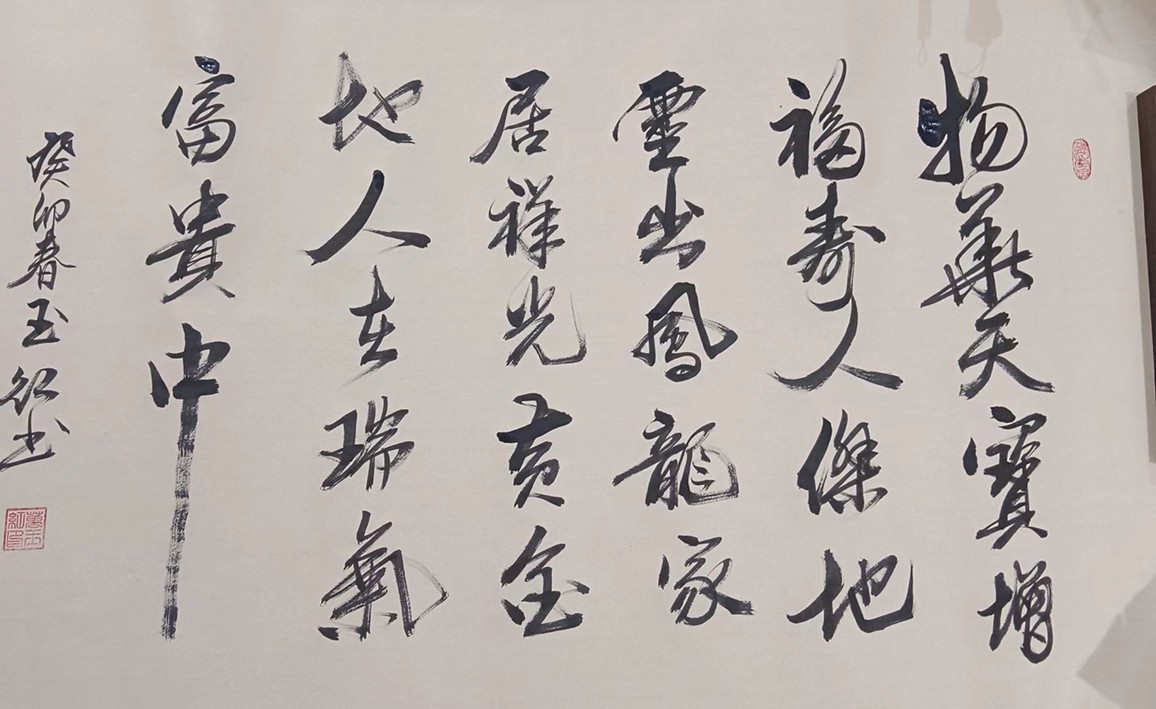 物華天寶增
福壽人傑地
靈出鳳龍家
居祥光黃金
地人在瑞氣
富貴中
癸卯春玉紅書